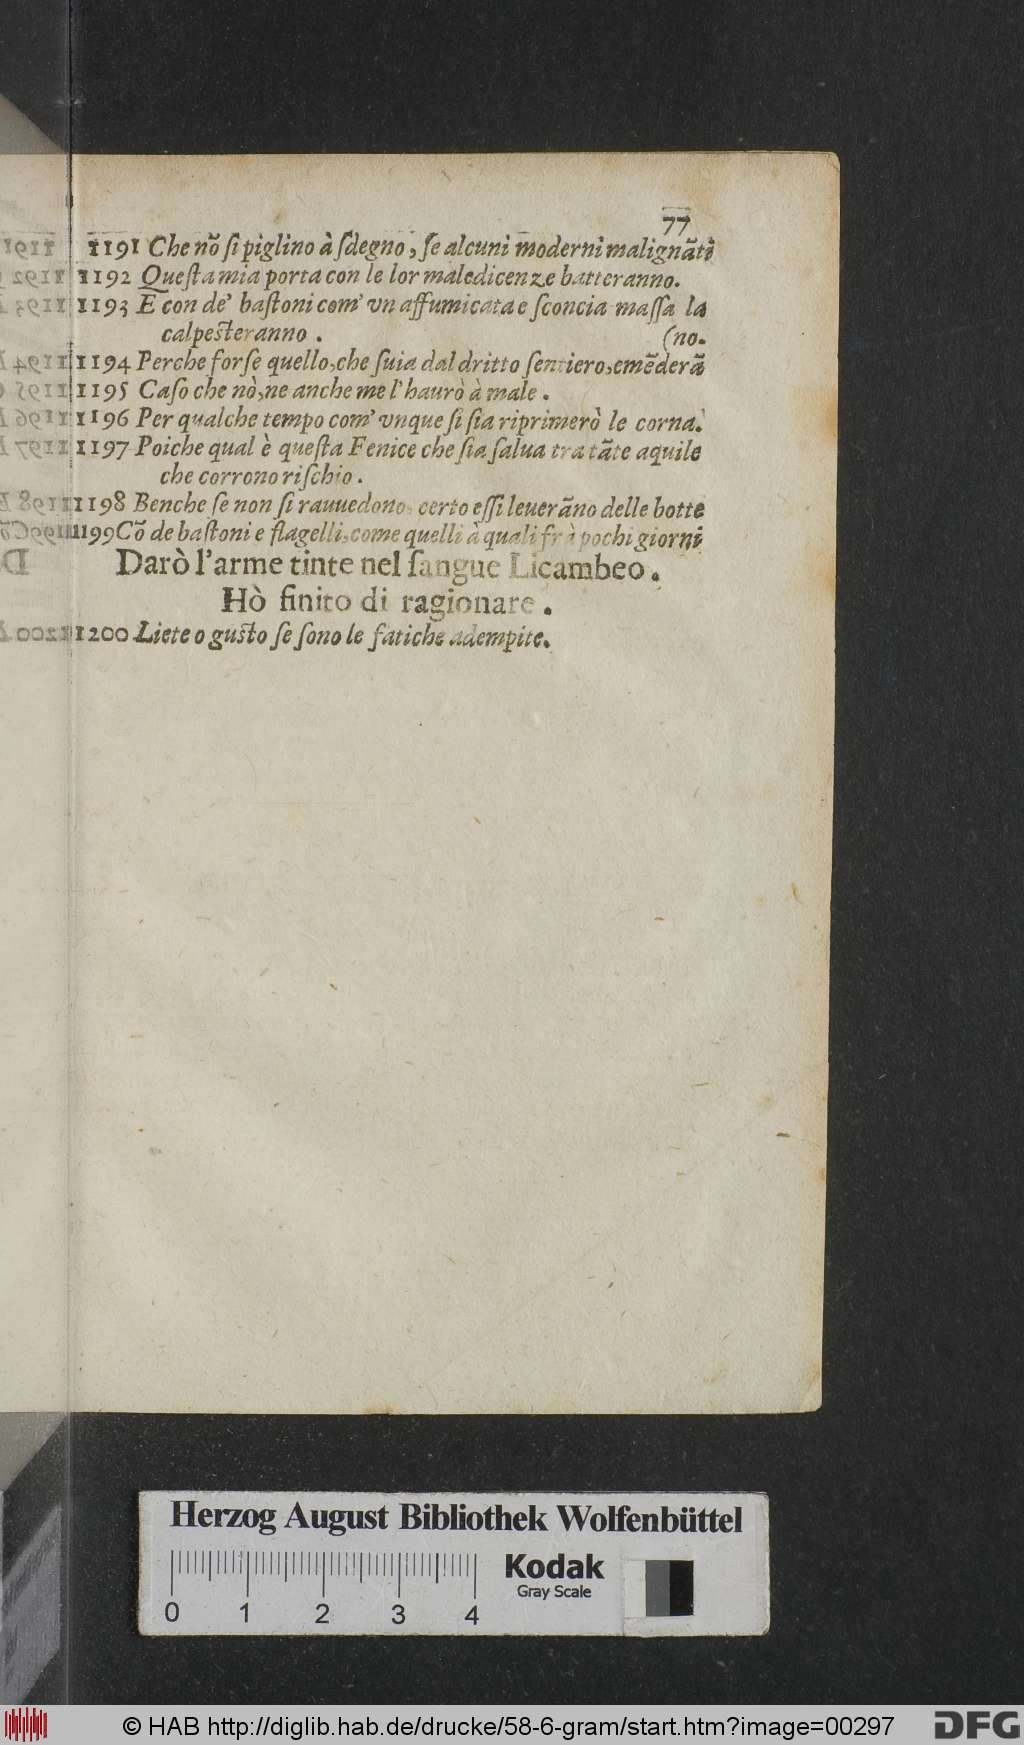 77
1191 Che nõ ſi piglino à ſdegno, ſe alcuni moderni malignãti
1192 Queſta mia porta con le lor maledicenze batteranno.
1193 E con de' baſtoni com' vn affumicata e ſconcia maſſa la
calpeſteranno .
(no.
1194 Perche forſe quello, che ſuia dal dritto ſentiero, emẽderã
1195 Caſo che nò, ne anche me l'haurò à male .
1196 Per qualche tempo com' vnque ſi ſia riprimerò le corna.
1197 Poiche qual è queſta Fenice che ſia ſalua tra tãte aquile
che corrono riſchio .
1198 Benche ſe non ſi rauuedono, certo eſſi leuerãno delle botte
1199 Cõ de baſtoni e flagelli, come quelli à quali frà pochi giorni
Darò l'arme tinte nel ſangue Licambeo.
Hò finito di ragionare.
1200 Liete o guſto ſe ſono le fatiche adempite.
Herzog August Bibliothek Wolfenbüttel
Kodak
Gray Scale
0 1 2 3 4
© HAB http://diglib.hab.de/drucke/58-6-gram/start.htm?image=00297
DFG